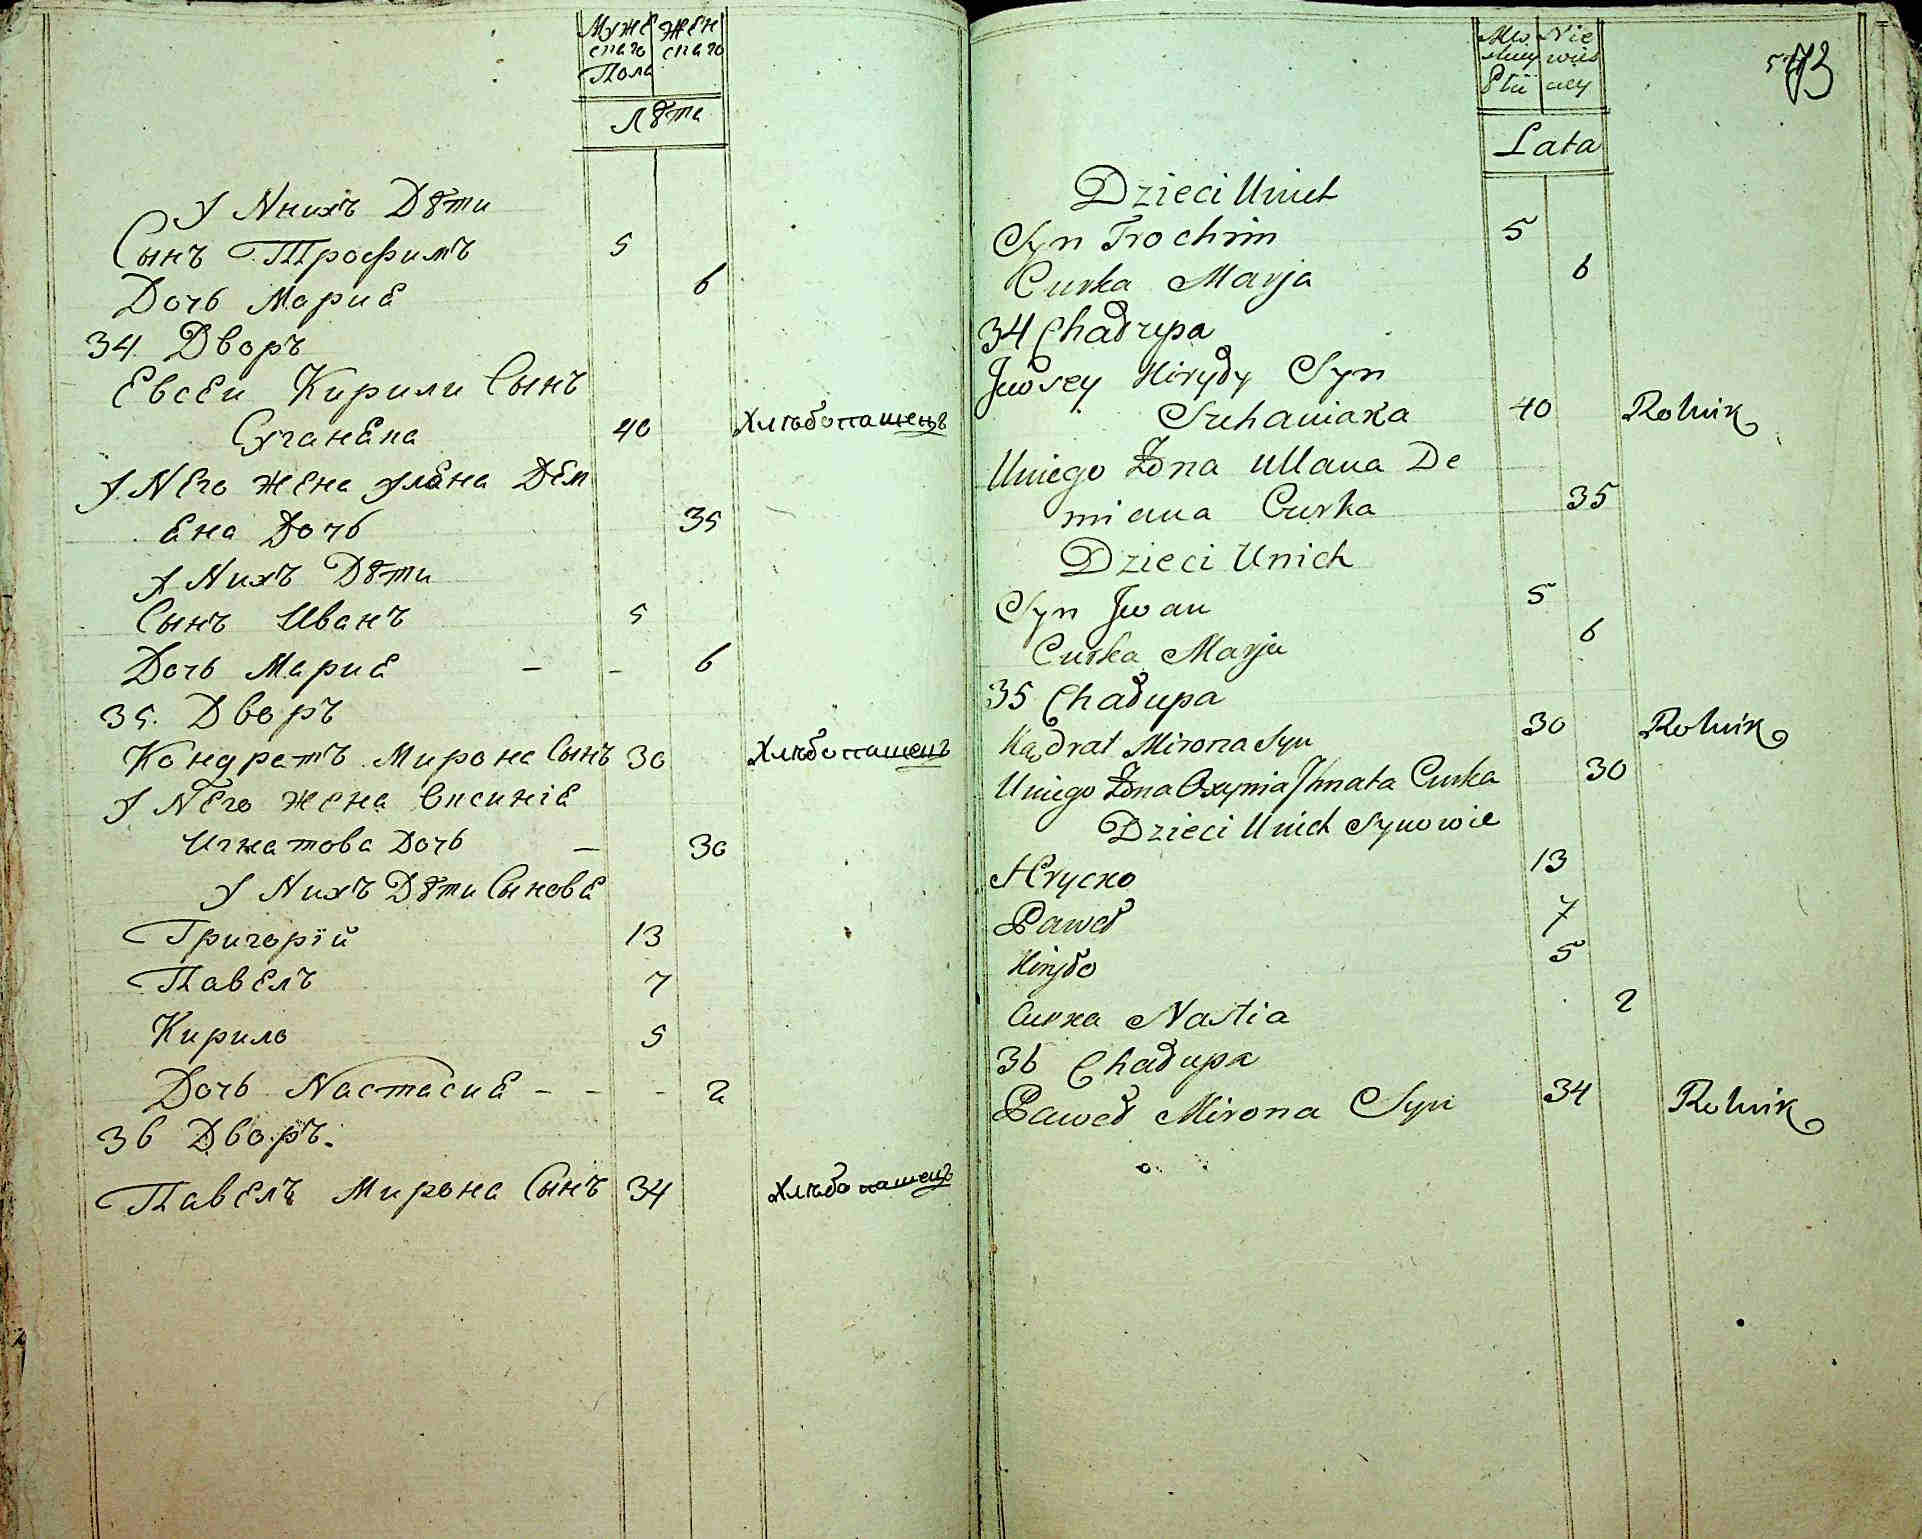 Муже Жен
скаго скаго
Пола
Лѣта
У Нихъ Дѣти
Сынъ Трофимъ 5
Дочь Марие 6
34 Дворъ
Евсеи Кирили Сынъ
Суганека 40 Хлѣбопашецъ
У Него жена Улена Дем
ена Дочь 35
У Нихъ Дѣти
Сынъ Иванъ 5
Дочь Марие - - 6
35. Дворъ
Кондратъ Мирона Сынъ 30 Хлѣбопашецъ
У Него жена Ѳксиніе
Игнатова Дочь - 30
У Нихъ Дѣти Сынове
Григорій 13
Павелъ 7
Кирило 5
Дочь Настасие - - - 2
36 Дворъ.
Павелъ Мирона Сынъ 34 Хлѣбопашецъ
73
Płci
Lata
Dzieci Unich
Syn Trochim 5
Curka Marja 6
34 Chałupa
Jwsey Kiryły Syn
Suhaniaka 40 Rolnik
Uniego Żona Ullana De
miana Curka 35
Dzieci Unich
Syn Jwan 5
Curka Marja 6
35 Chałupa
Kądrat Mirona Syn 30 Rolnik
Uniego Żona Oxynia Jhnata Curka 30
Dzieci Unich Synowie
Hrycko 13
Paweł 7
Kiryło 5
Curka Nastia 2
36 Chałupa
Paweł Mirona Syn 34 Rolnik